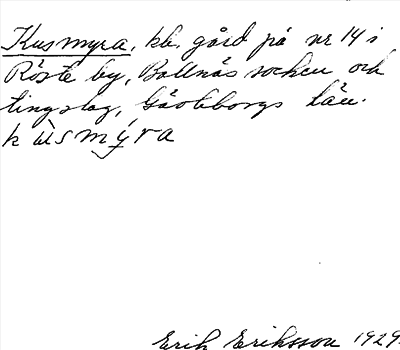 Kusmyra, kb. gård på nr 14 i
Röste by, Bollnäs socken och
tingslag, Gävleborgs län.
k ùs m ý r a
Erik Eriksson 1929.